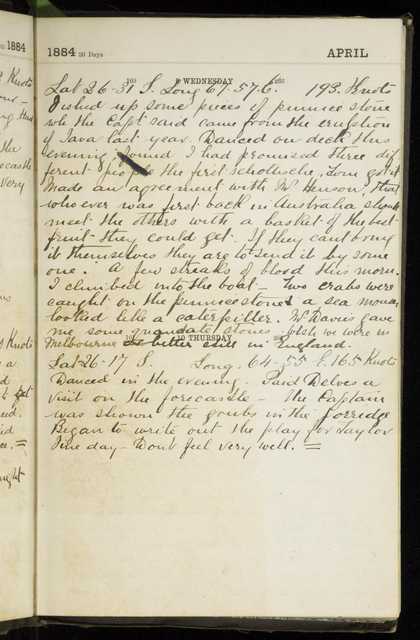 1884
1884 30 Days APRIL
9 WEDNESDAY
Lat 26-31 S. Long 67-57 E. 193. Knots
Fished up some pieces of pumice stone
wh the Capt said came from the eruption
of Java last year. Danced on deck this
evening, found I had promised three dif
ferent people the first schottische, Tom got it
Made an agreement with Mr Henson, that
who ever was first back in Australia should
meet the others with a basket of the best
fruit they could get. If they cant bring
it themselves they are to send it by some
one. A few streaks of blood this morn.
I climbed into the boat – Two crabs were
caught on the pumice stone & a sea mouse,
looked like a caterpillar. Mr Davis gave
me some stones. Wish we were in
Melbourne better still in England.
10 THURSDAY
Lat 26-17 S. Long. 64-55 E. 165 Knots
Danced in the evening. Paid Delves a
visit on the forecastle – The Captain
was shown the grubs in the porridge
Began to write out the play for Taylor
Fine day – Dont feel very well. =